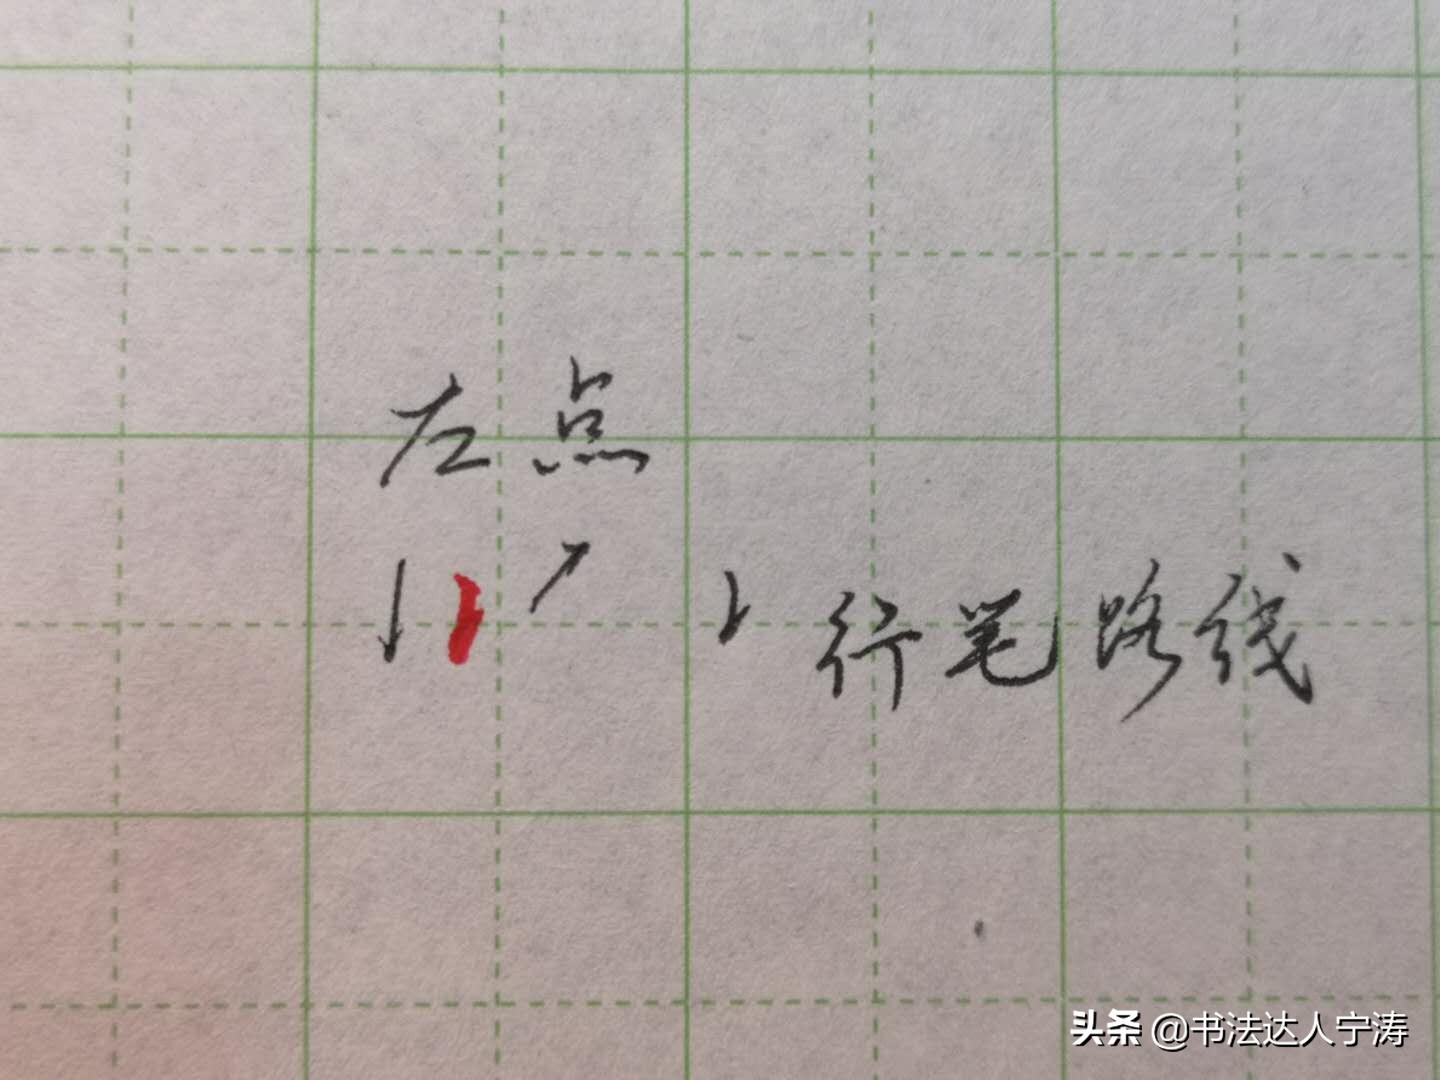 左点
行笔路线
头条 @书法达人宁涛